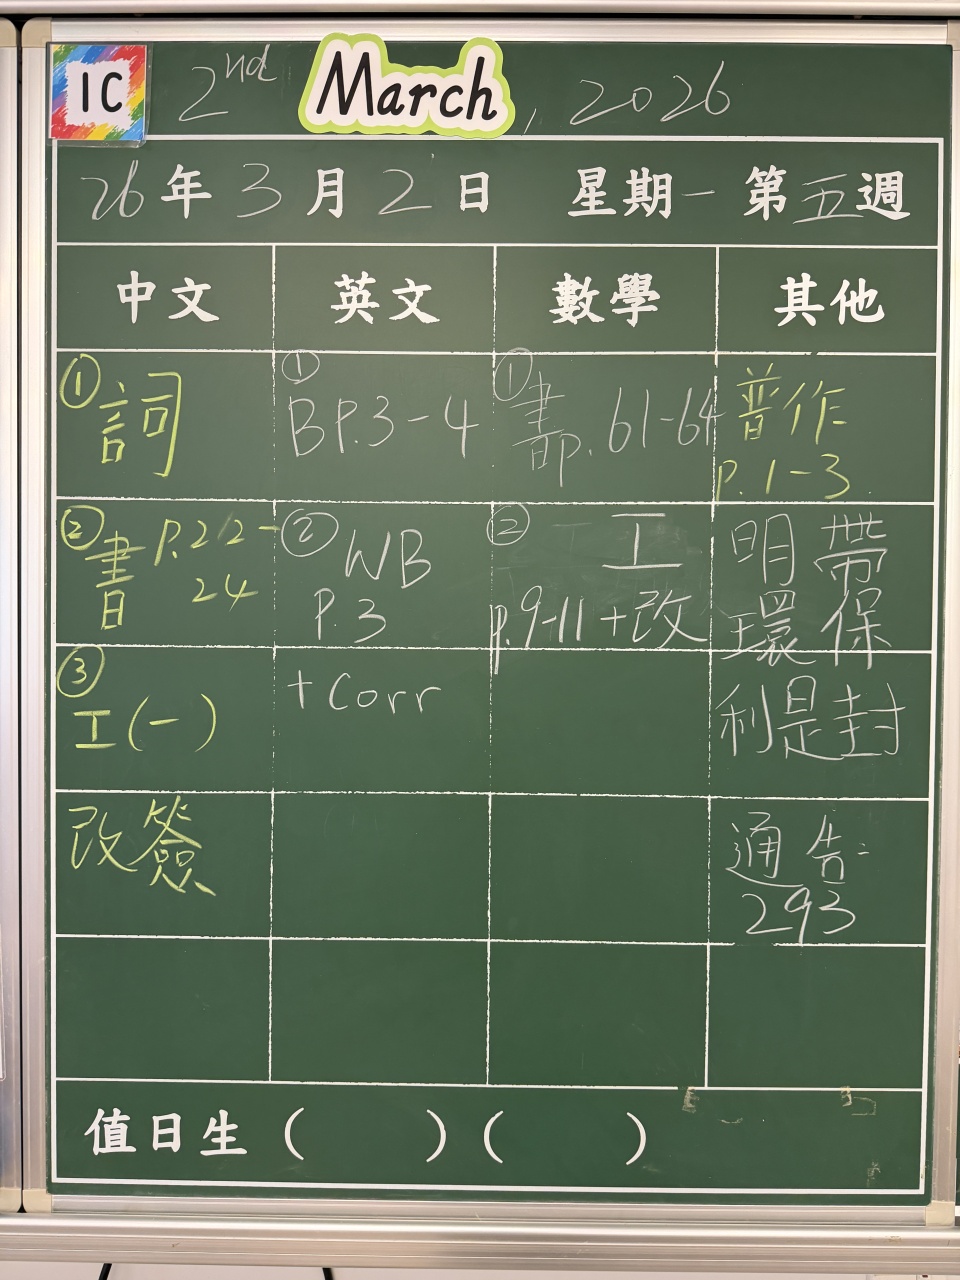 1C 2nd March, 2026
26年3月2日 星期一 第五週
中文 英文 數學 其他
① 詞
① BP.3-4
① 書p. 61-64
普作
p.1-3
② 書 P.22-
24
② WB
P.3
② 工
p.9-11+改
明帶
環保
③
工(一)
+Corr
利是封
改簽
通告:
293
值日生 ( ) ( )